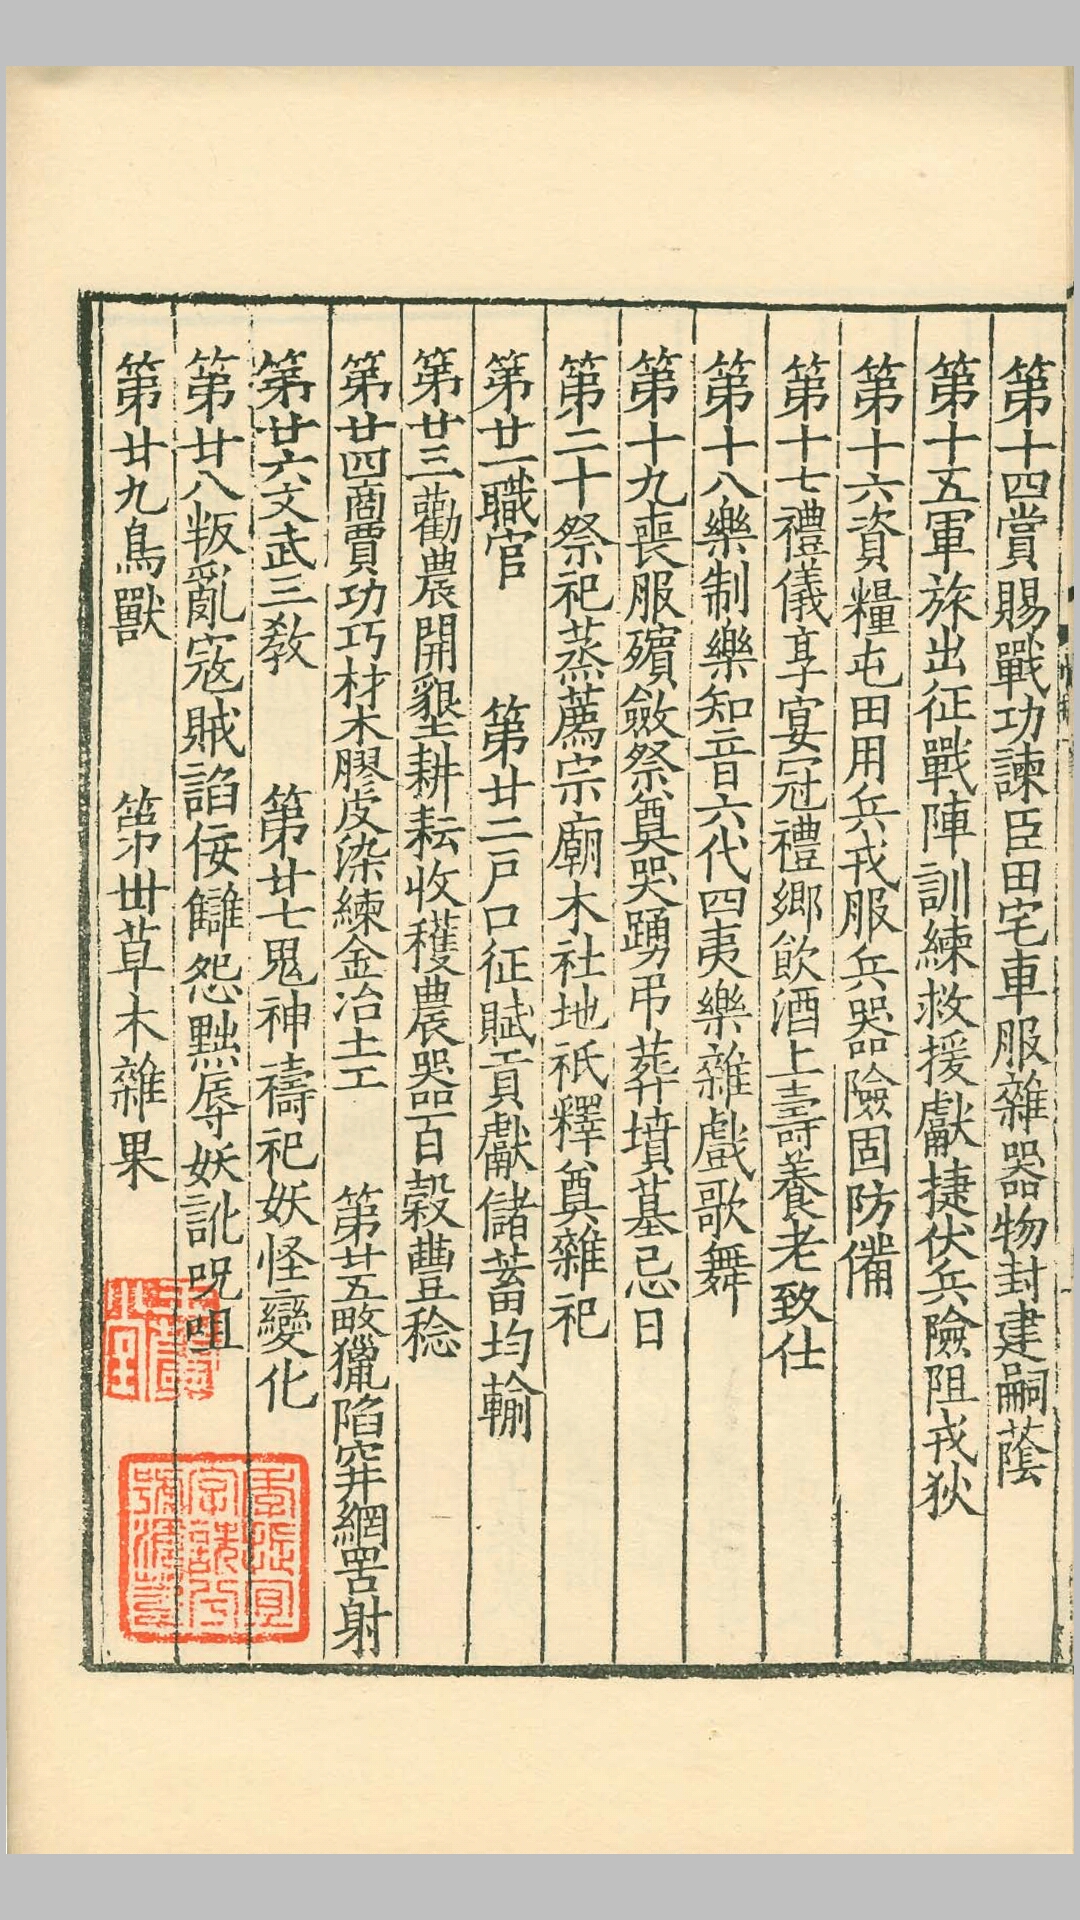 第十四賞賜戰功諫臣田宅車服雜器物封建嗣蔭
第十五軍旅出征戰陣訓練救援獻捷伏兵險阻戎狄
第十六資糧屯田用兵戎服兵器險固防備
第十七禮儀享宴冠禮鄉飲酒上壽養老致仕
第十八樂制樂知音六代四夷樂雜戲歌舞
第十九喪服殯斂祭奠哭踊弔葬墳墓忌日
第二十祭祀蒸薦宗廟木社地祇釋奠雜祀
第廿一職官　第廿二戶口征賦貢獻儲蓄均輸
第廿三勸農開墾耕耘收穫農器百穀豊稔
第廿四商賈功巧材木膠皮染練金冶土工　第廿五畋獵陷穽網罟射
第廿六文武三教　第廿七鬼神禱祀妖怪變化
第廿八叛亂寇賊諂佞讎怨黜辱妖訛呪咀
第廿九鳥獸　第丗草木雜果